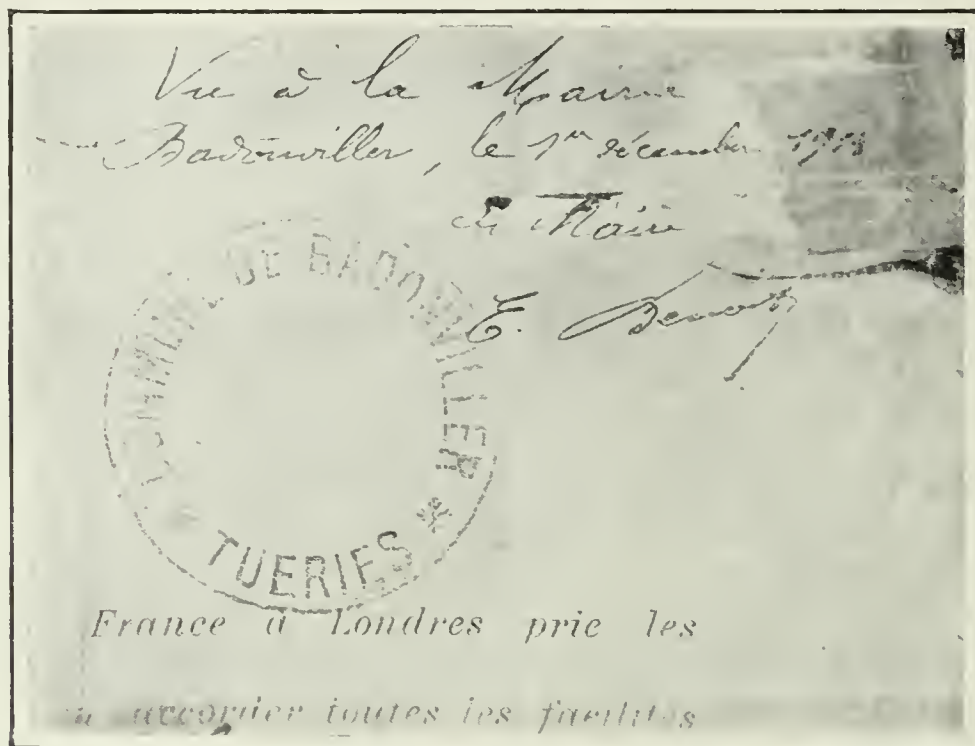 Vue à la Mairie
Badonviller, le 1er décembre
Le Maire
E. Benoit
COMMUNE DE BADONVILLER *
TUERIES
France à Londres prie les
accorder toutes les facilités